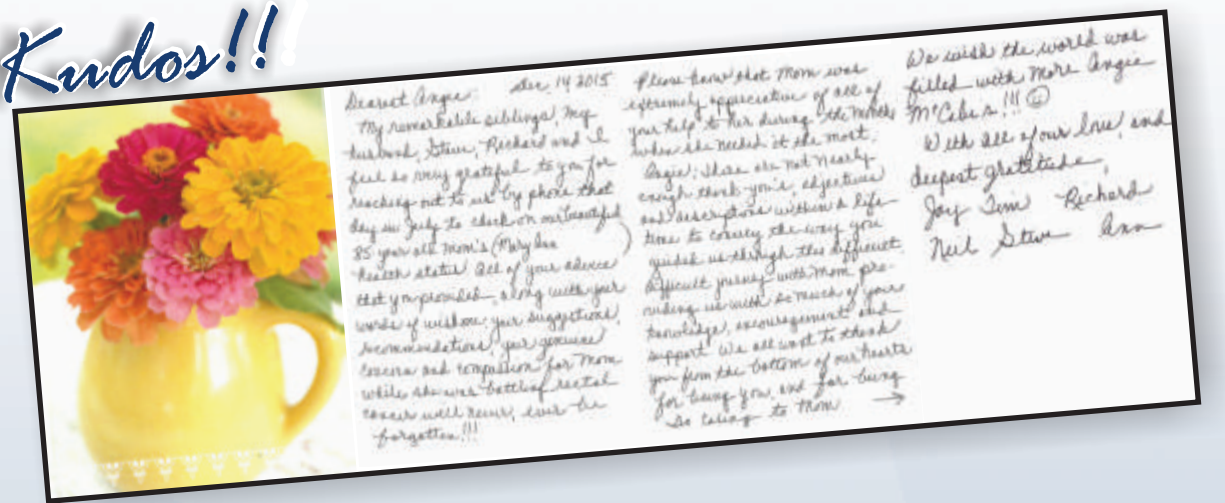 Kudos!!
Dearest Angie: Dec 14 2015
My remarkable siblings, my
husband, Steve, Richard and I
feel so very grateful to you for
reaching out to us by phone that
day in July to check on our beautiful
85 year old mom's (Mary Ann )
health status. All of your advice
that you provided, along with your
words of wisdom, your suggestions,
recommendations, your genuine
concern and compassion for Mom
while she was battling rectal
cancer will never, ever be
forgotten!!!
Please know that Mom was
extremely appreciative of all of
your help to her during the months
when she needed it the most.
Angie; there are not nearly
enough thank you's, adjectives
and descriptions within a life-
time to convey the way you
guided us through this difficult
difficult journey with Mom pro-
viding us with so much of your
knowledge, encouragement and
support. We all want to thank
you from the bottom of our hearts
for being you, and for being
so caring to Mom →
We wish the world was
filled with more Angie
McCabe's!!! ☺
With all of our love, and
deepest gratitude,
Joy Tim Richard
Neil Steve Ann